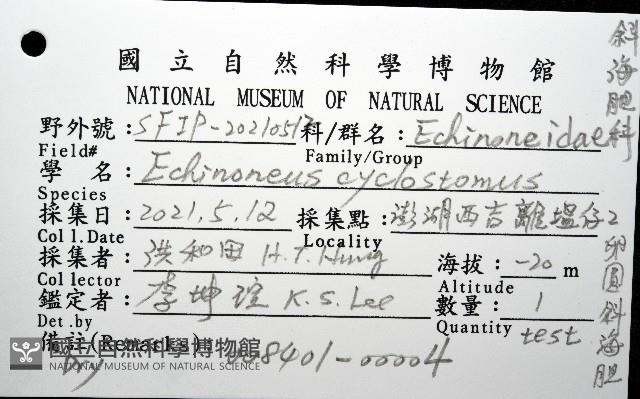 國立自然科學博物館
NATIONAL MUSEUM OF NATURAL SCIENCE
野外號:SFIP-20210517 科/群名:Echinoneidae
Field# Family/Group
學 名:Echinoneus cyclostomus
Species
採集日:2021.5.12 採集點:澎湖西吉離塭仔2
Coll.Date Locality
採集者:洪和田 H.T.Hung 海拔:-20 m
Collector Altitude
鑑定者:李坤瑄 K.S.Lee 數量:1
Det.by Quantity test
備註(Remarks)
008401-00004
斜海胆科
卵圓斜海胆
國立自然科學博物館
NATIONAL MUSEUM OF NATURAL SCIENCE